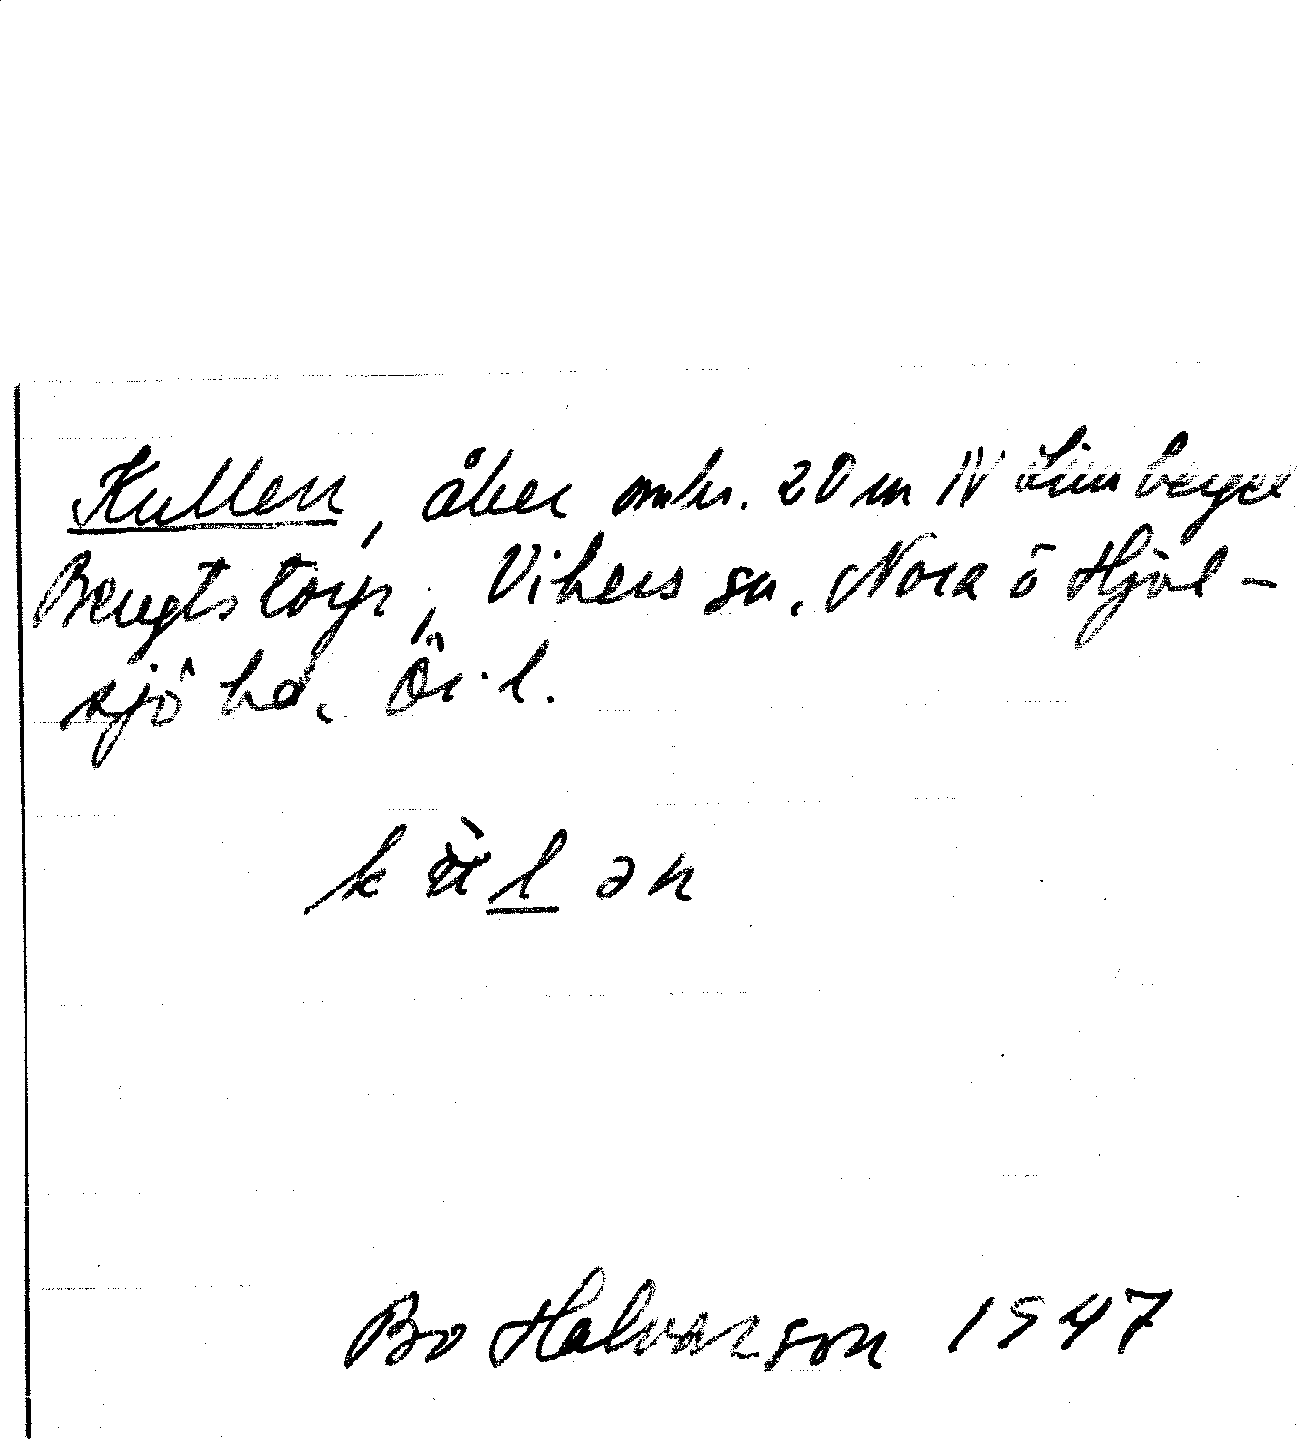 Kullen, åker omkr. 20 m N Limberget
Bengtstorp, Vikers sn, Nora o Hjul-
sjö bg. Ör. l.
k ù l ə n
Bo Halvarson 1947